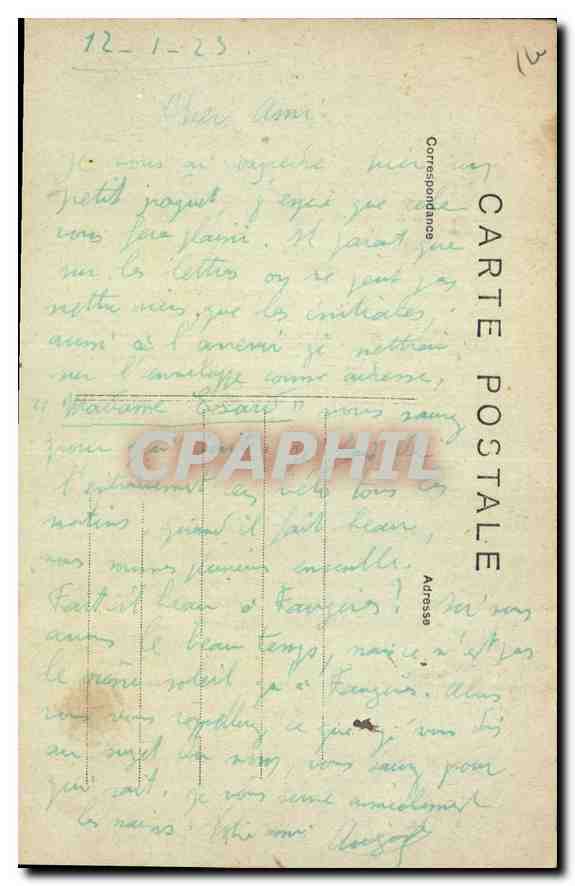 12-1-23.
Cher Ami.
Je vous ai
petit paquet, j'espère que cela
vous fera plaisir. Il parait que
sur les lettres on ne peut pas
mettre rien que les initiales,
aussi à l'avenir je mettrai
sur l'enveloppe comme adresse,
"Madame " vous savez
pour
l'entrainement en vélo tous les
matins, quand il fait beau,
nous sommes plusieurs ensemble.
Fait-il beau à Faugères? Ici nous
avons le beau temps, mais ce n'est pas
le même soleil qu'à Faugères. Alors
vous vous rappellez ce que j'ai vous dis
au sujet du nom, vous savez pour
qui sait. Je vous serre amicalement
les mains. Votre ami
CARTE POSTALE
Correspondance
Adresse
CPAPHIL